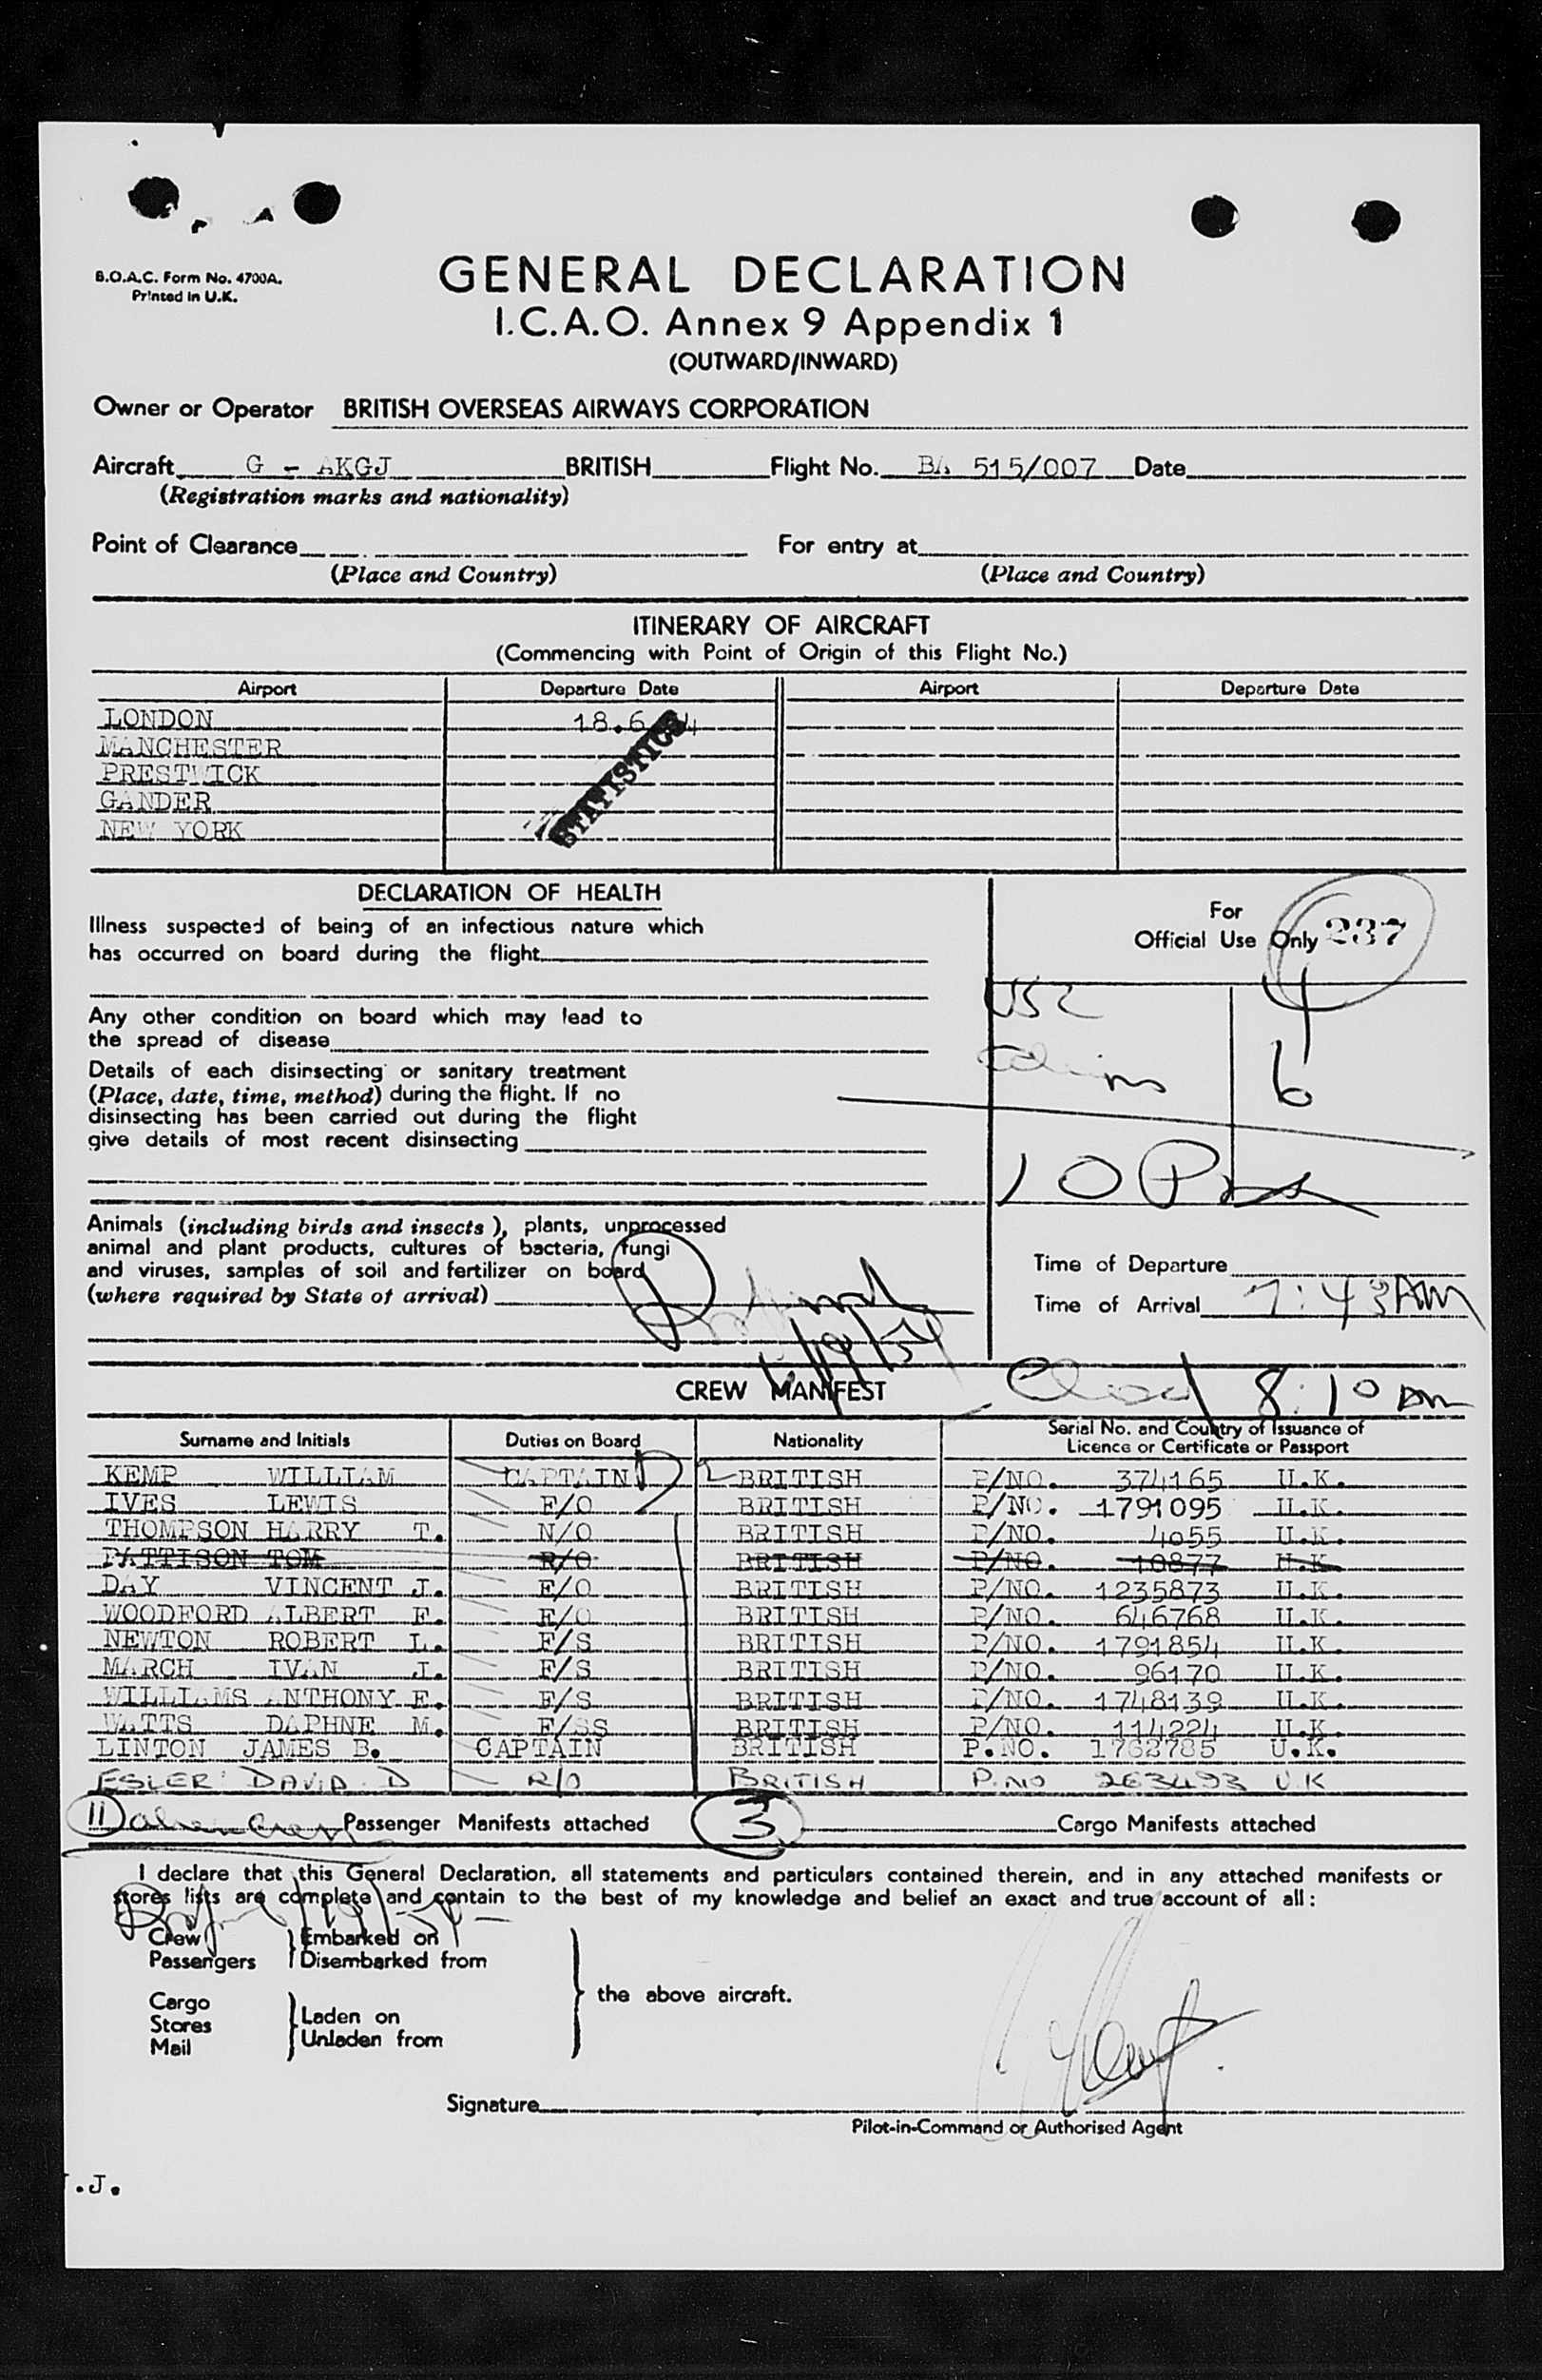 B.O.A.C. Form No. 4700A.
Printed in U.K.
GENERAL DECLARATION
I.C.A.O. Annex 9 Appendix 1
(OUTWARD/INWARD)
Owner or Operator BRITISH OVERSEAS AIRWAYS CORPORATION
Aircraft G - AKGJ BRITISH Flight No. BA 515/007 Date
(Registration marks and nationality)
Point of Clearance For entry at
(Place and Country) (Place and Country)
ITINERARY OF AIRCRAFT
(Commencing with Point of Origin of this Flight No.)
Airport Departure Date Airport Departure Date
LONDON 18.6.54
MANCHESTER
PRESTWICK
GANDER
NEW YORK
STATISTICS
DECLARATION OF HEALTH
Illness suspected of being of an infectious nature which
has occurred on board during the flight
Any other condition on board which may lead to
the spread of disease
Details of each disinsecting or sanitary treatment
(Place, date, time, method) during the flight. If no
disinsecting has been carried out during the flight
give details of most recent disinsecting
Animals (including birds and insects), plants, unprocessed
animal and plant products, cultures of bacteria, fungi
and viruses, samples of soil and fertilizer on board
(where required by State of arrival)
For
Official Use Only 237
USC 4
6
10 Pax
Time of Departure
Time of Arrival 7:43AM
CREW MANIFEST 8:10 am
Surname and Initials Duties on Board Nationality Serial No. and Country of Issuance of
Licence or Certificate or Passport
KEMP WILLIAM CAPTAIN BRITISH P/NO. 374165 U.K.
IVES LEWIS F/O BRITISH P/NO. 1791095 U.K.
THOMPSON HARRY T. N/O BRITISH P/NO. 4055 U.K.
PATTISON TOM R/O BRITISH P/NO. 10877 U.K
DAY VINCENT J. E/O BRITISH P/NO. 1235873 U.K.
WOODFORD ALBERT F. E/O BRITISH P/NO. 646768 U.K.
NEWTON ROBERT L. F/S BRITISH P/NO. 1791854 U.K.
MARCH IVAN J. F/S BRITISH P/NO. 96170 U.K.
WILLIAMS ANTHONY E. F/S BRITISH P/NO. 1748139 U.K.
WATTS DAPHNE M. F/SS BRITISH P/NO. 114224 U.K.
LINTON JAMES B. CAPTAIN BRITISH P.NO. 1762785 U.K.
ESLER DAVID D R/O BRITISH P.NO 263493 U.K
11 Passenger Manifests attached 3 Cargo Manifests attached
I declare that this General Declaration, all statements and particulars contained therein, and in any attached manifests or
stores lists are complete and contain to the best of my knowledge and belief an exact and true account of all:
Crew Embarked on
Passengers Disembarked from
the above aircraft.
Cargo
Stores Laden on
Mail Unladen from
Signature
Pilot-in-Command or Authorised Agent
.J.